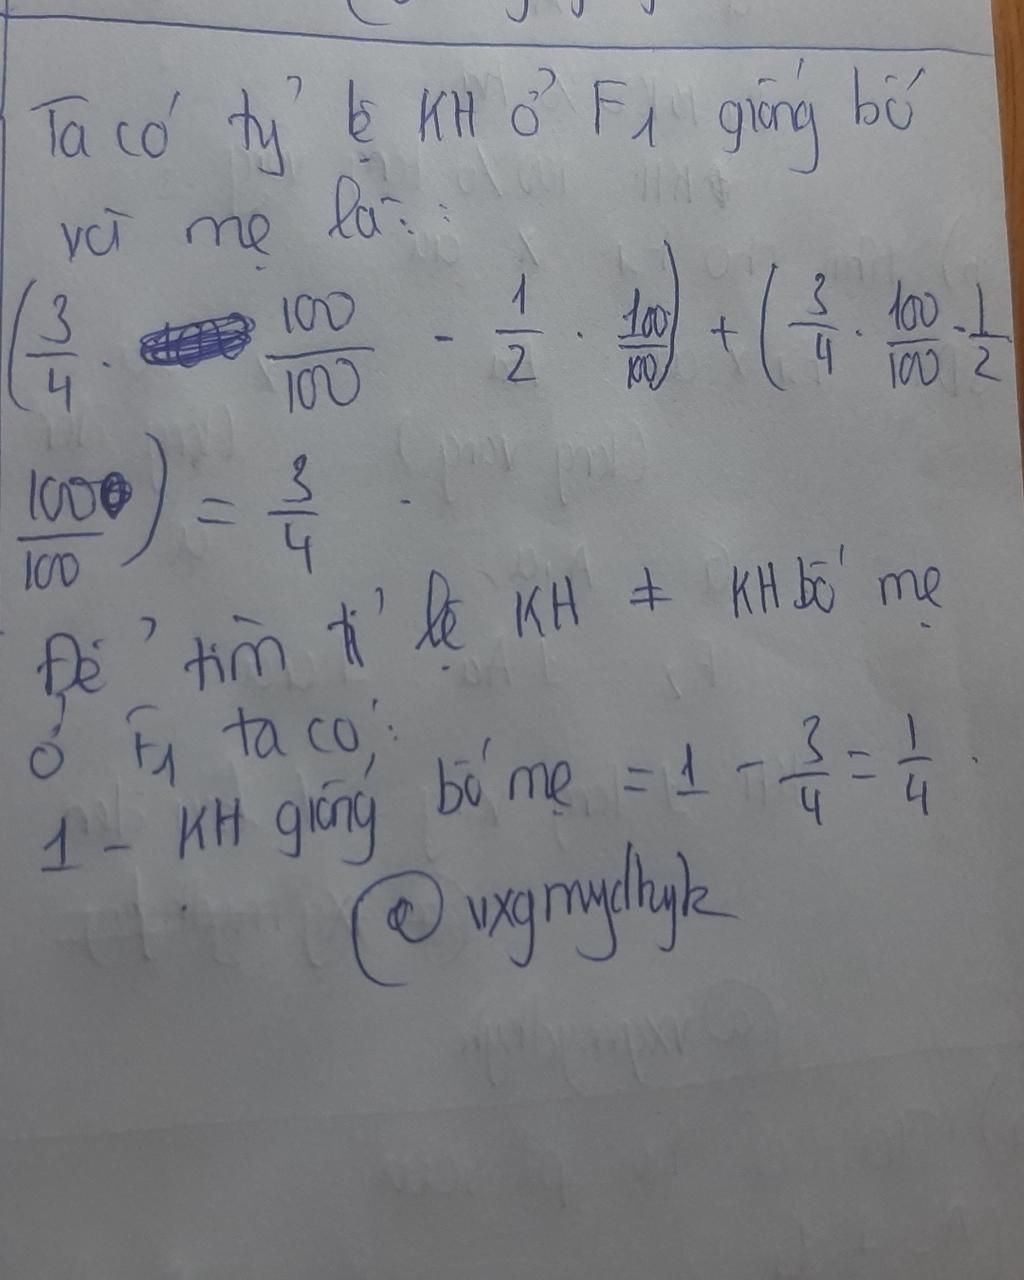 Ta có tỷ lệ KH ở F1 giống bố
và mẹ là:
(3/4 . 100/100 - 1/2 . 100/100) + (3/4 . 100/100 - 1/2
100/100) = 3/4 .
Để tìm tỉ lệ KH ≠ KH bố mẹ
ở F1 ta có:
1 - KH giống bố mẹ = 1 - 3/4 = 1/4 .
@vxgmydkyk